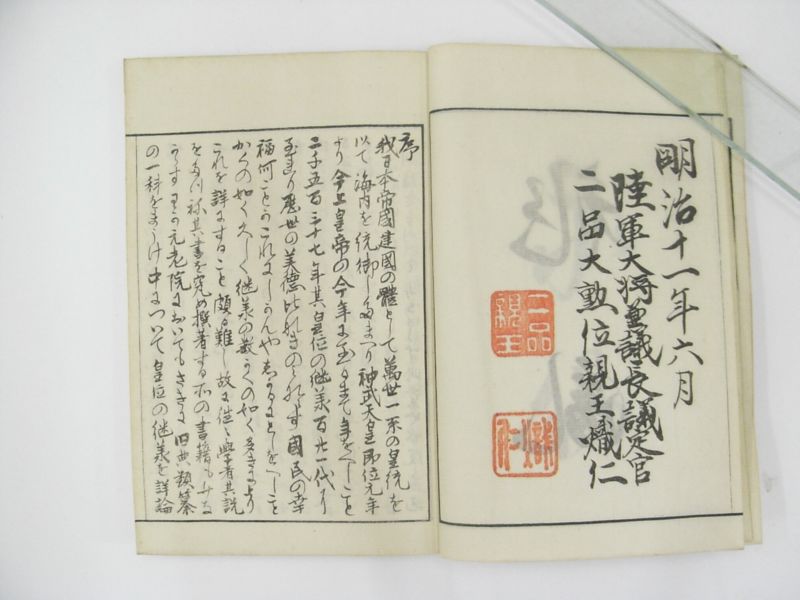 明治十一年六月
陸軍大将兼議長議定官
二品大勲位親王熾仁
二品
親王
熾
仁
序
我日本帝國建國の體として萬世一系の皇統を
以て海内を統御したまつり神武天皇即位元年
より今上皇帝の今年に至るまて年をへること
二千五百三十七年其皇位の継承百廿一代に
至れり歴世の美徳比れきのみれす國民の幸
福何ことかこれにしかんや しかるにとしをへること
かくの如く久しく継承の数かくの如く多きにより
これを詳にすること頗る難し故に往々學者其説
を 其書を究め撰著する所の書籍も
元老院においてもさきに旧典類纂
の一科をまうけ中について皇位の継承を詳論